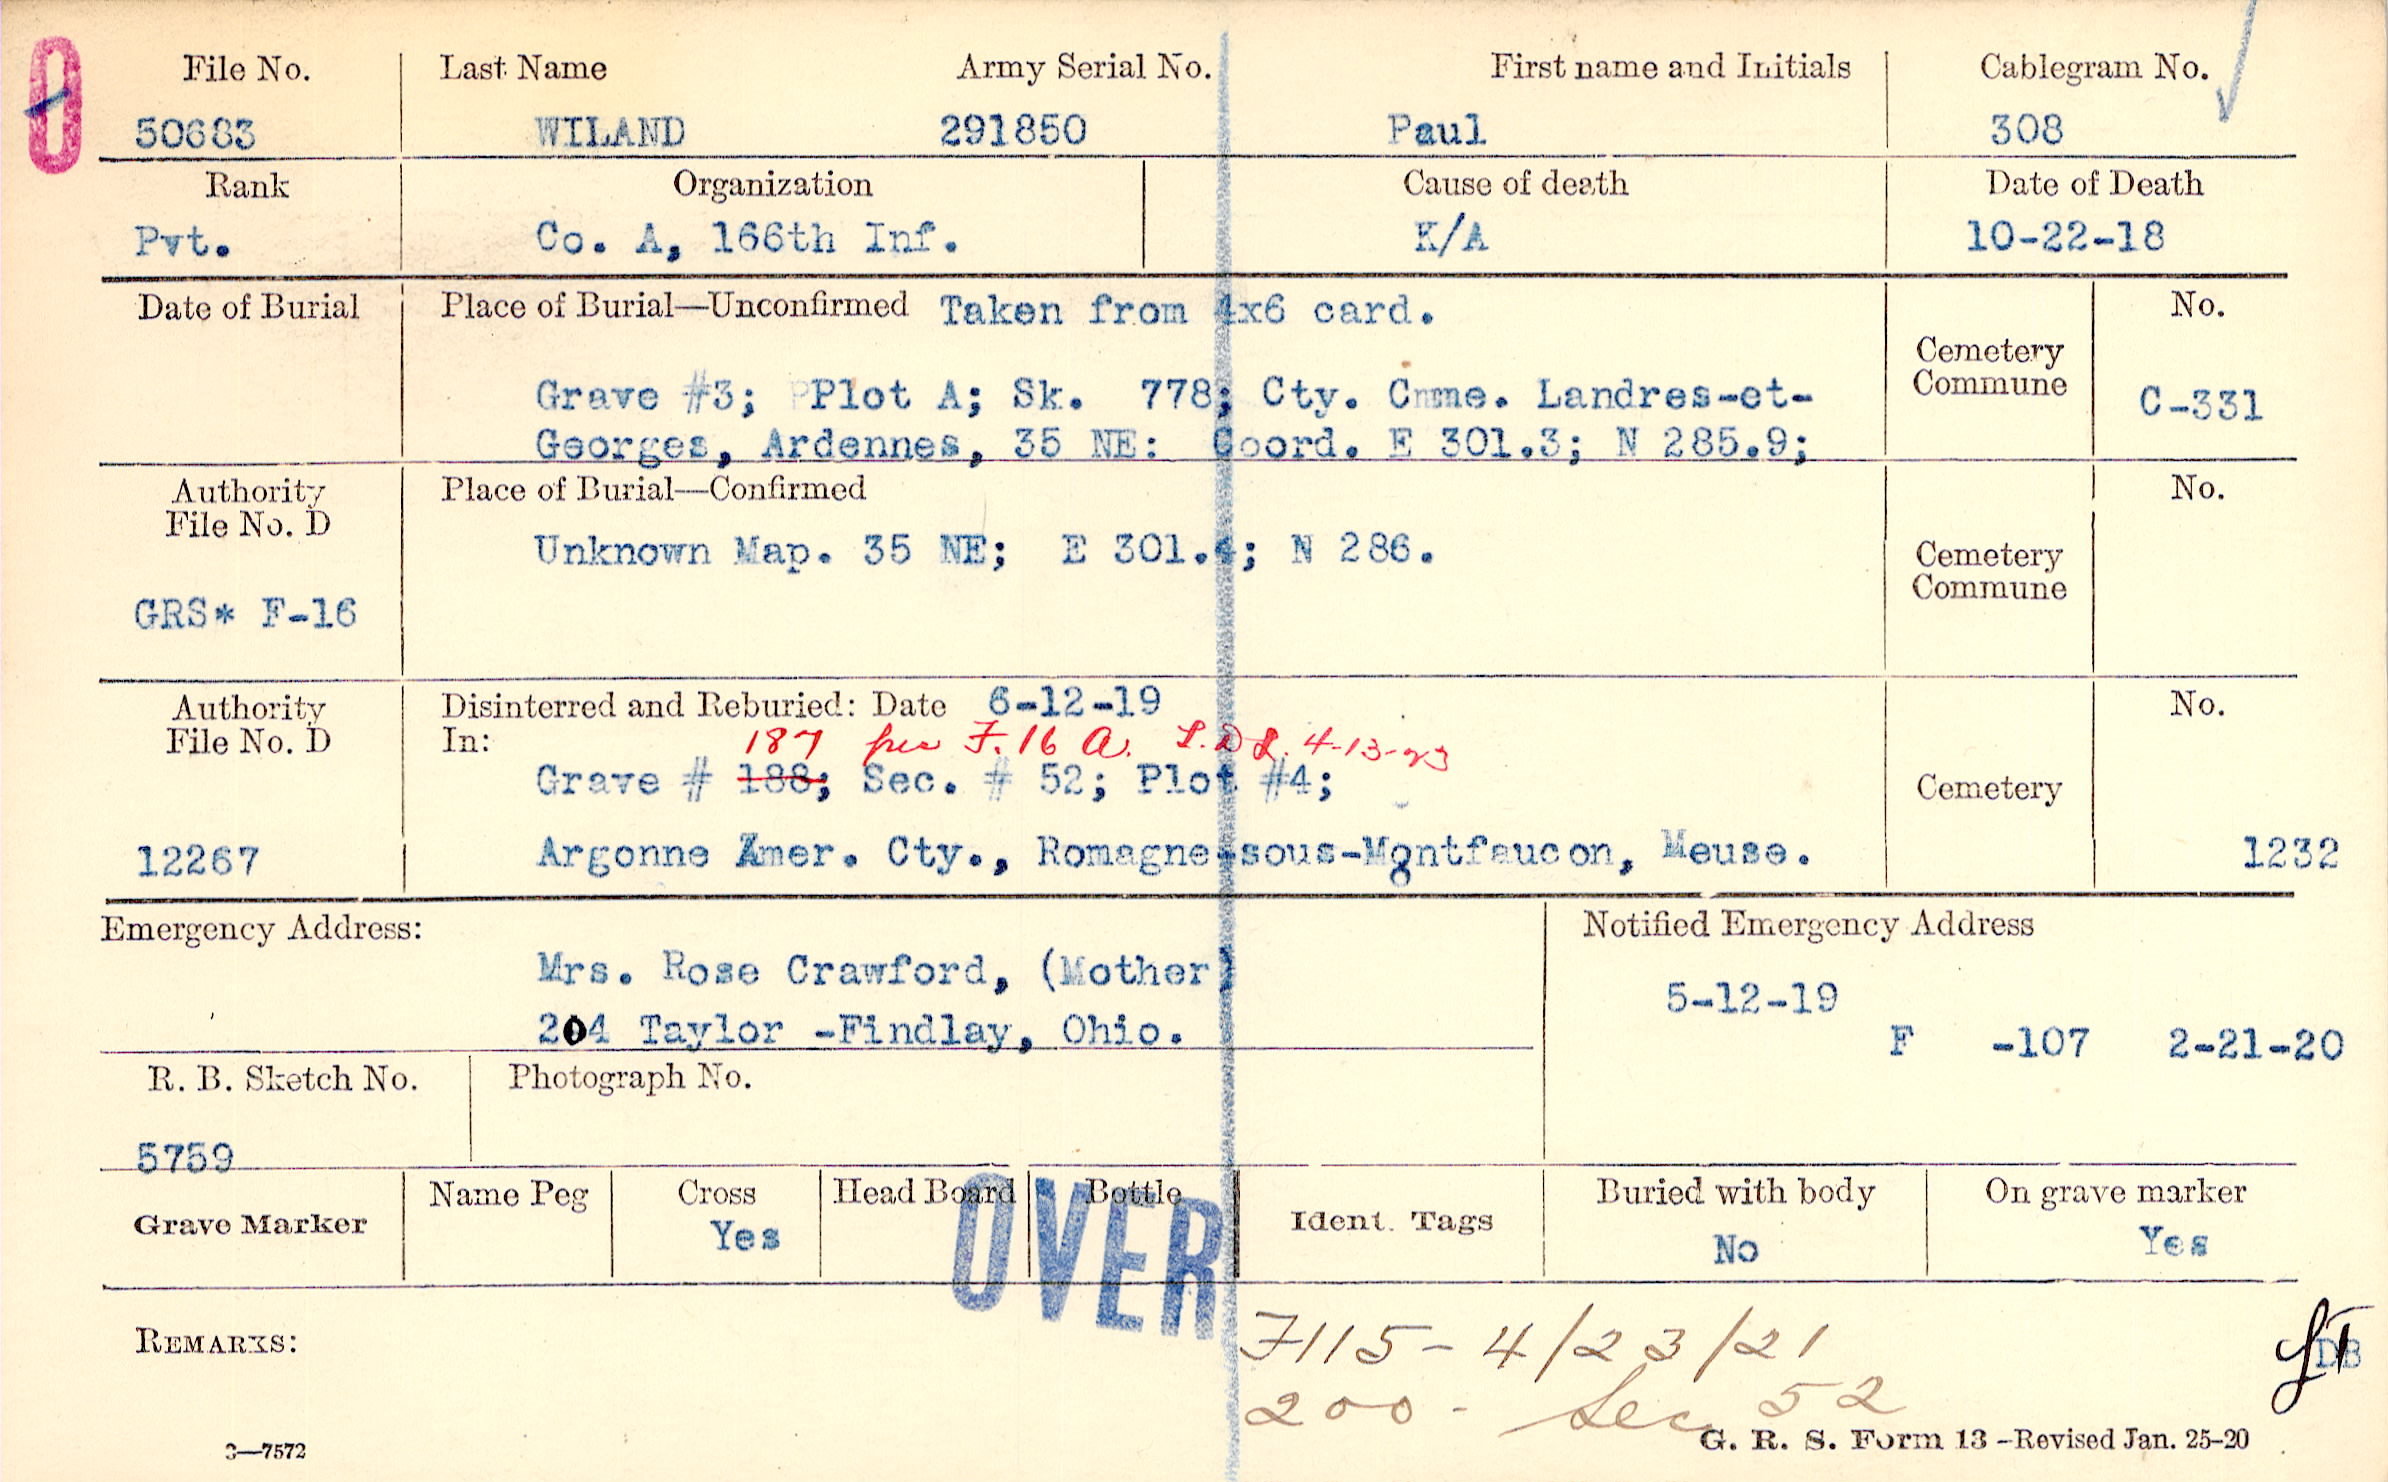 File No. Last Name Army Serial No. First name and Initials Cablegram No.
50683 WILAND 291850 Paul 308
Rank Organization Cause of death Date of Death
Pvt. Co. A, 166th Inf. K/A 10-22-18
Date of Burial Place of Burial—Unconfirmed Taken from 4x6 card. No.
Cemetery
Commune
Grave #3; PPlot A; Sk. 778; Cty. Cmne. Landres-et- C-331
Georges, Ardennes, 35 NE: Coord. E 301.3; N 285.9;
Authority Place of Burial—Confirmed No.
File No. D
Unknown Map. 35 NE; E 301.4; N 286.
Cemetery
Commune
GRS* F-16
Authority Disinterred and Reburied: Date 6-12-19 No.
File No. D In: 187 per F. 16 A. 4-13-23
Grave # 188; Sec. # 52; Plot #4; Cemetery
12267 Argonne Amer. Cty., Romagne-sous-Montfaucon, Meuse. 1232
Emergency Address: Notified Emergency Address
Mrs. Rose Crawford, (Mother)
5-12-19
204 Taylor -Findlay, Ohio.
F -107 2-21-20
R. B. Sketch No. Photograph No.
5759
Grave Marker Name Peg Cross Head Board Bottle Ident. Tags Buried with body On grave marker
Yes No Yes
OVER
REMARKS: F115- 4/23/21
DB
200- Sec 52
3—7572 G. R. S. Form 13 -Revised Jan. 25-20